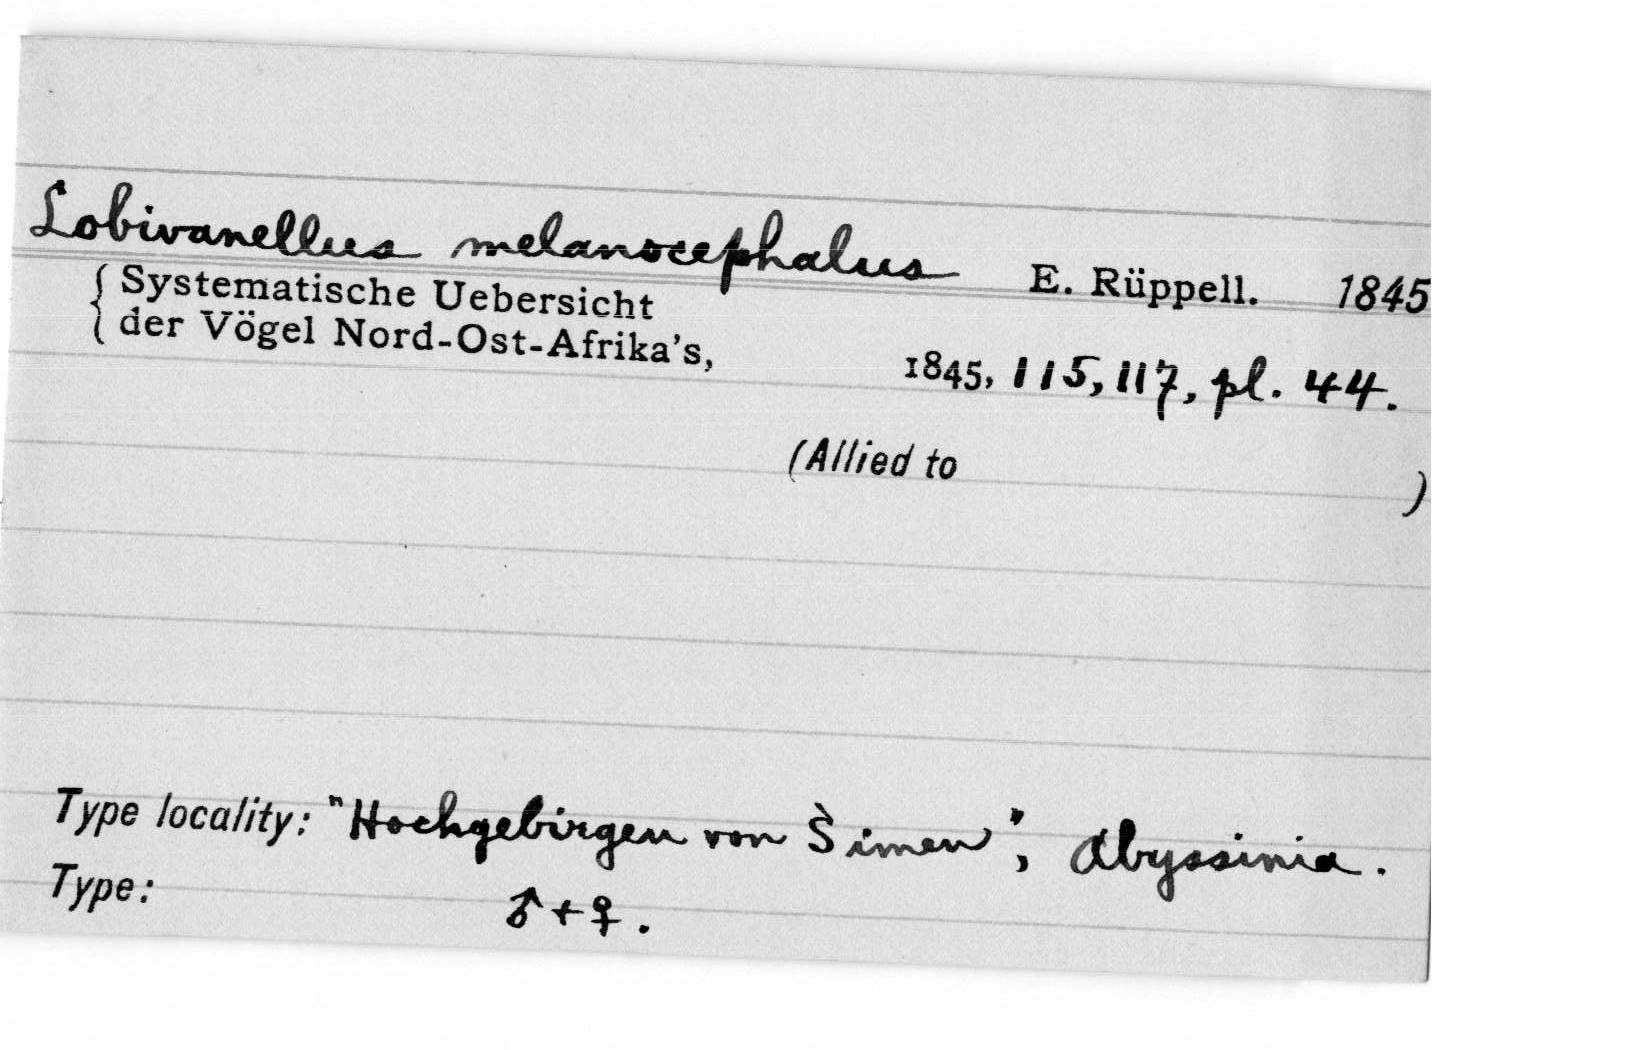 Lobivanellus melanocephalus E. Rüppell. 1845
Systematische Uebersicht
der Vögel Nord-Ost-Afrika's,
1845, 115, 117, pl. 44.
(Allied to )
Type locality: "Hochgebirgen von Simen", Abyssinia.
Type: ♂ + ♀.